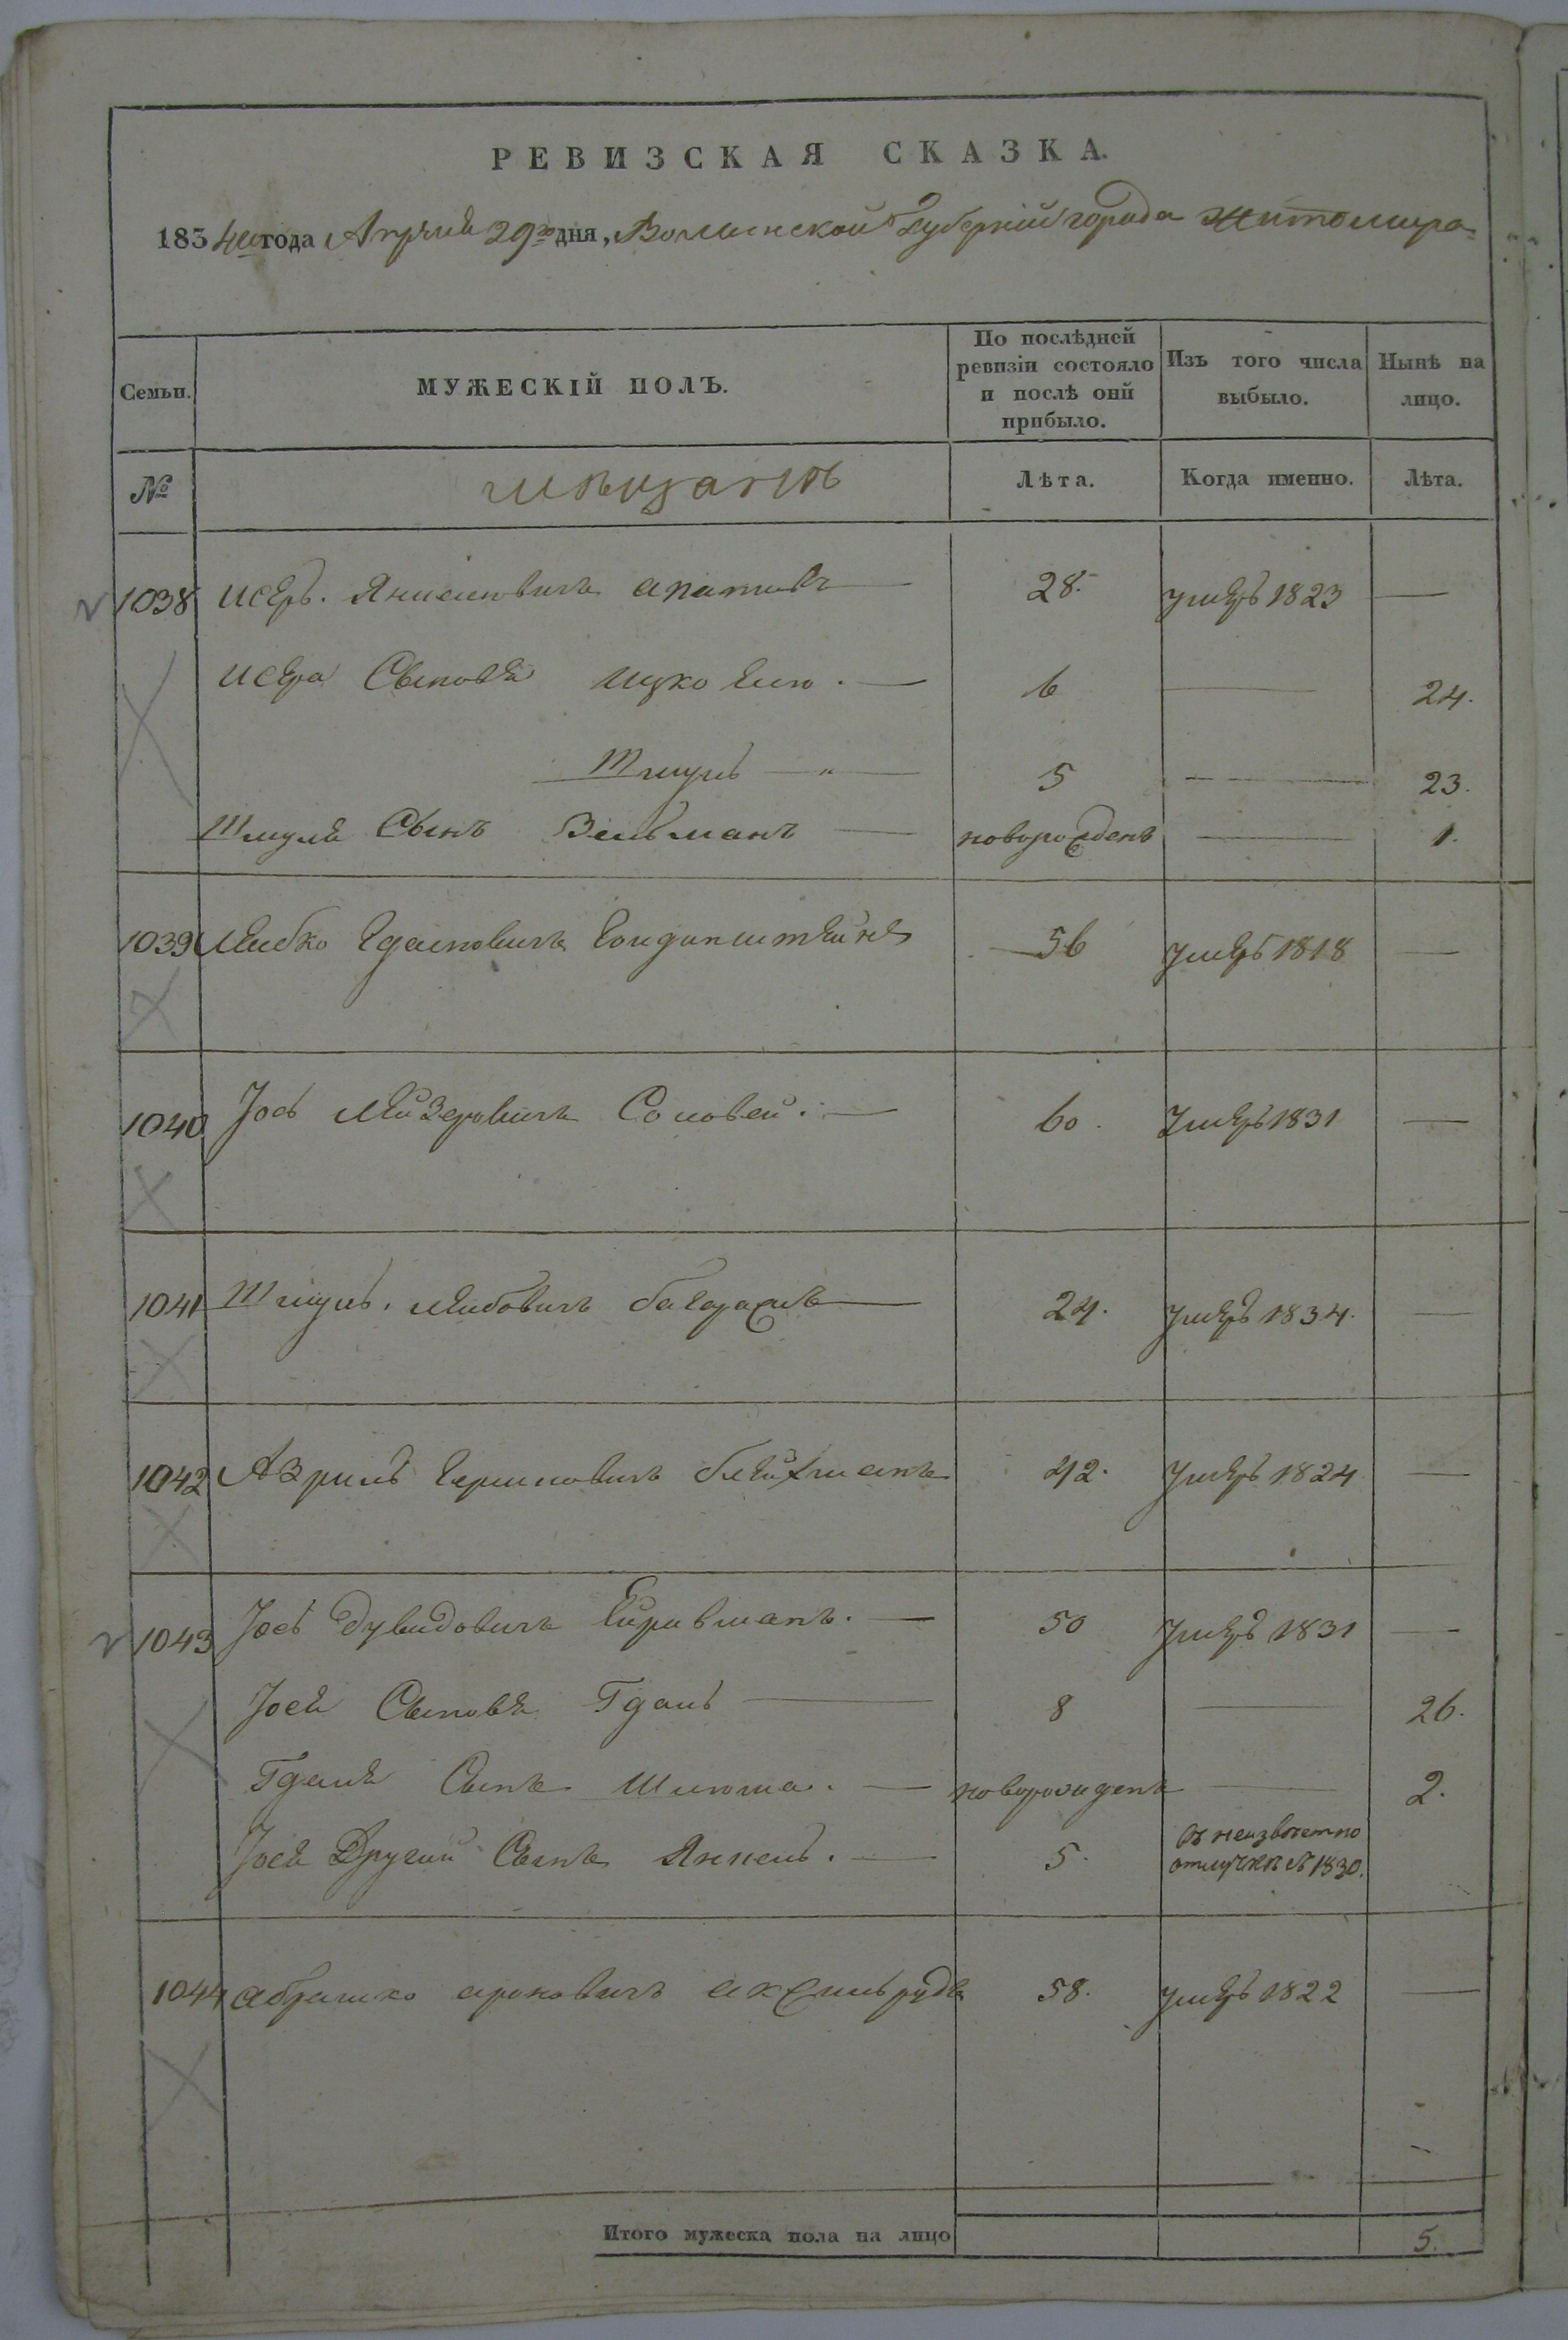 РЕВИЗСКАЯ СКАЗКА.
1834го года Апреля 29го дня, Волынской Губерніи города Житомира
Семьи.
МУЖЕСКІЙ ПОЛЪ.
По послѣдней
ревизіи состояло
и послѣ оній
прибыло.
Изъ того числа
выбыло.
Нынѣ на
лицо.
№
мѣщанъ
Лѣта.
Когда именно.
Лѣта.
1038 Исеръ. 28. умеръ 1823 —
Исера Сыновя Ицко 6 — 24.
Шмуль — 5 — 23.
Шмуля Сынъ Зельманъ — новорожденъ — 1.
1039 Лейбко 56 умеръ 1818 —
1040 Іось Лейзеровичъ Соловей. — 60. умеръ 1831 —
1041 Шмуль. Лейбовичъ — 24. умеръ 1834. —
1042 Азриль 42. умеръ 1824 —
1043 Іось Дувидовичъ — 50 умеръ 1831 —
Іося Сыновя Гдаль — 8 — 26.
Гдаля Сынъ — новорожденъ — 2.
Іося Другий Сынъ Янкель. — 5. въ неизвѣстно
отлучкѣ съ 1830.
1044 Абрамко Ароновичъ Аксельрудъ 58. умеръ 1822 —
Итого мужеска пола на лицо 5.